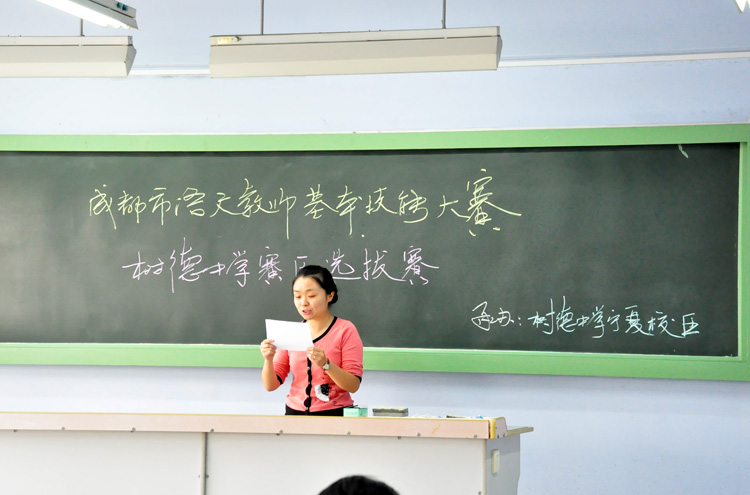 成都市语文教师基本技能大赛
树德中学赛区选拔赛
承办：树德中学宁夏校区